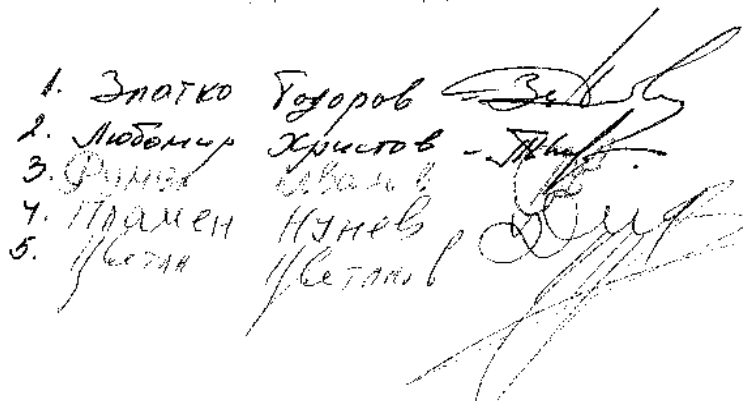 1. Златко Тодоров
2. Любомир Христов -
3.
4. Пламен Нунев
5. Цветан Цветанов